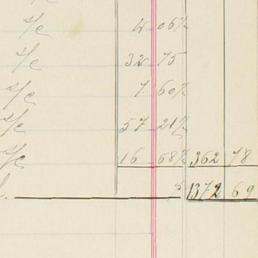 s/c 4 06½
s/c 32 75
s/c 7 60½
s/c 57 21½
s/c 16 68½ 362 78
1372 69